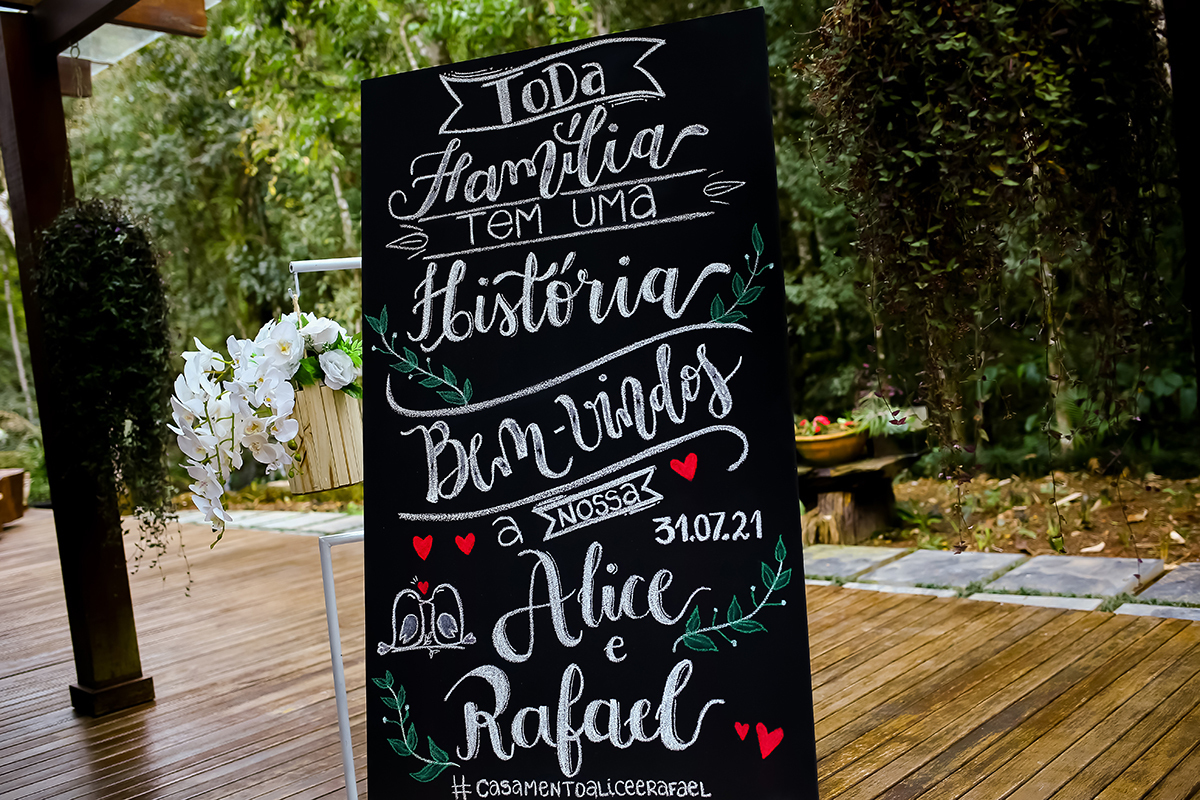 Toda
Família
tem uma
História
Bem-vindos
a nossa
31.07.21
Alice
e
Rafael
#casamentoaliceerafael